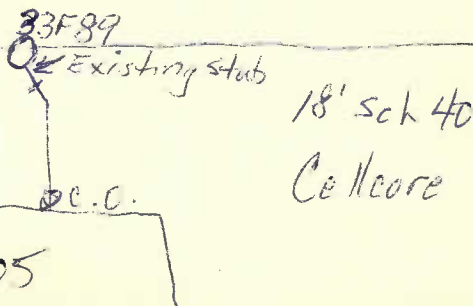 33F89
Existing stub
18' Sch 40
Cellcore
C.O.
05